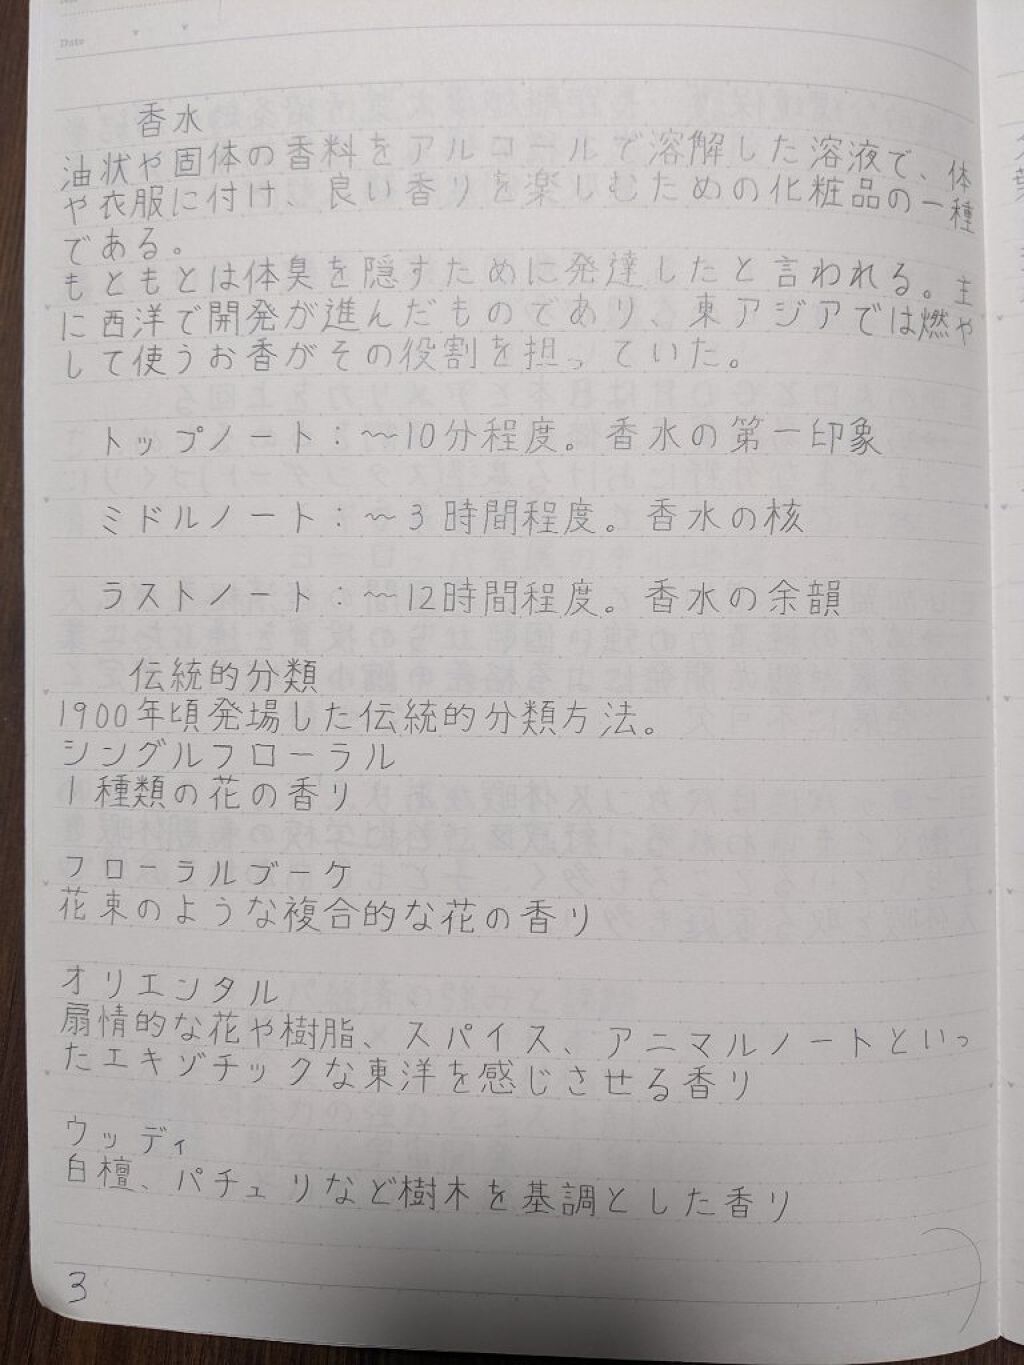 Date
香水
油状や固体の香料をアルコールで溶解した溶液で、体
や衣服に付け、良い香りを楽しむための化粧品の一種
である。
もともとは体臭を隠すために発達したと言われる。主
に西洋で開発が進んだものであり、東アジアでは燃や
して使うお香がその役割を担っていた。
トップノート：〜10分程度。香水の第一印象
ミドルノート：〜3時間程度。香水の核
ラストノート：〜12時間程度。香水の余韻
伝統的分類
1900年頃発場した伝統的分類方法。
シングルフローラル
1種類の花の香り
フローラルブーケ
花束のような複合的な花の香り
オリエンタル
扇情的な花や樹脂、スパイス、アニマルノートといっ
たエキゾチックな東洋を感じさせる香り
ウッディ
白檀、パチュリなど樹木を基調とした香り
3